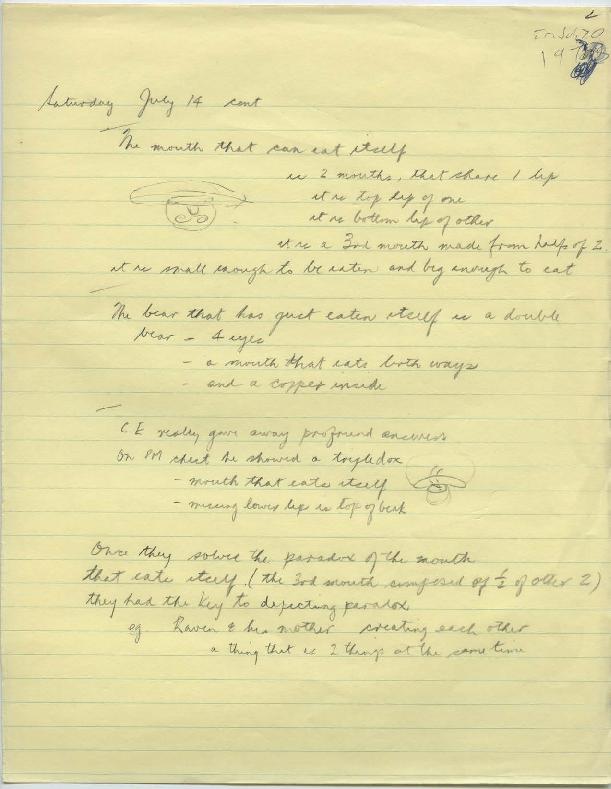 197
Saturday July 14 cont
The mouth that can eat itself
is 2 mouths, that share 1 lip
it is top lip of one
it is bottom lip of other
it is a 3rd mouth made from half of 2.
it is small enough to be eaten and big enough to eat
The bear that has just eaten itself is a double
bear - 4 eyes
- a mouth that eats both ways
- and a copper inside
C E really gave away profound answers
On PM chest he showed a tripledox
- mouth that eats itself
- missing lower lip is top of beak
Once they solve the paradox of the mouth
that eats itself. (the 3rd mouth composed of ½ of other 2)
they had the key to depicting paradox
eg Raven & his mother creating each other
a thing that is 2 things at the same time